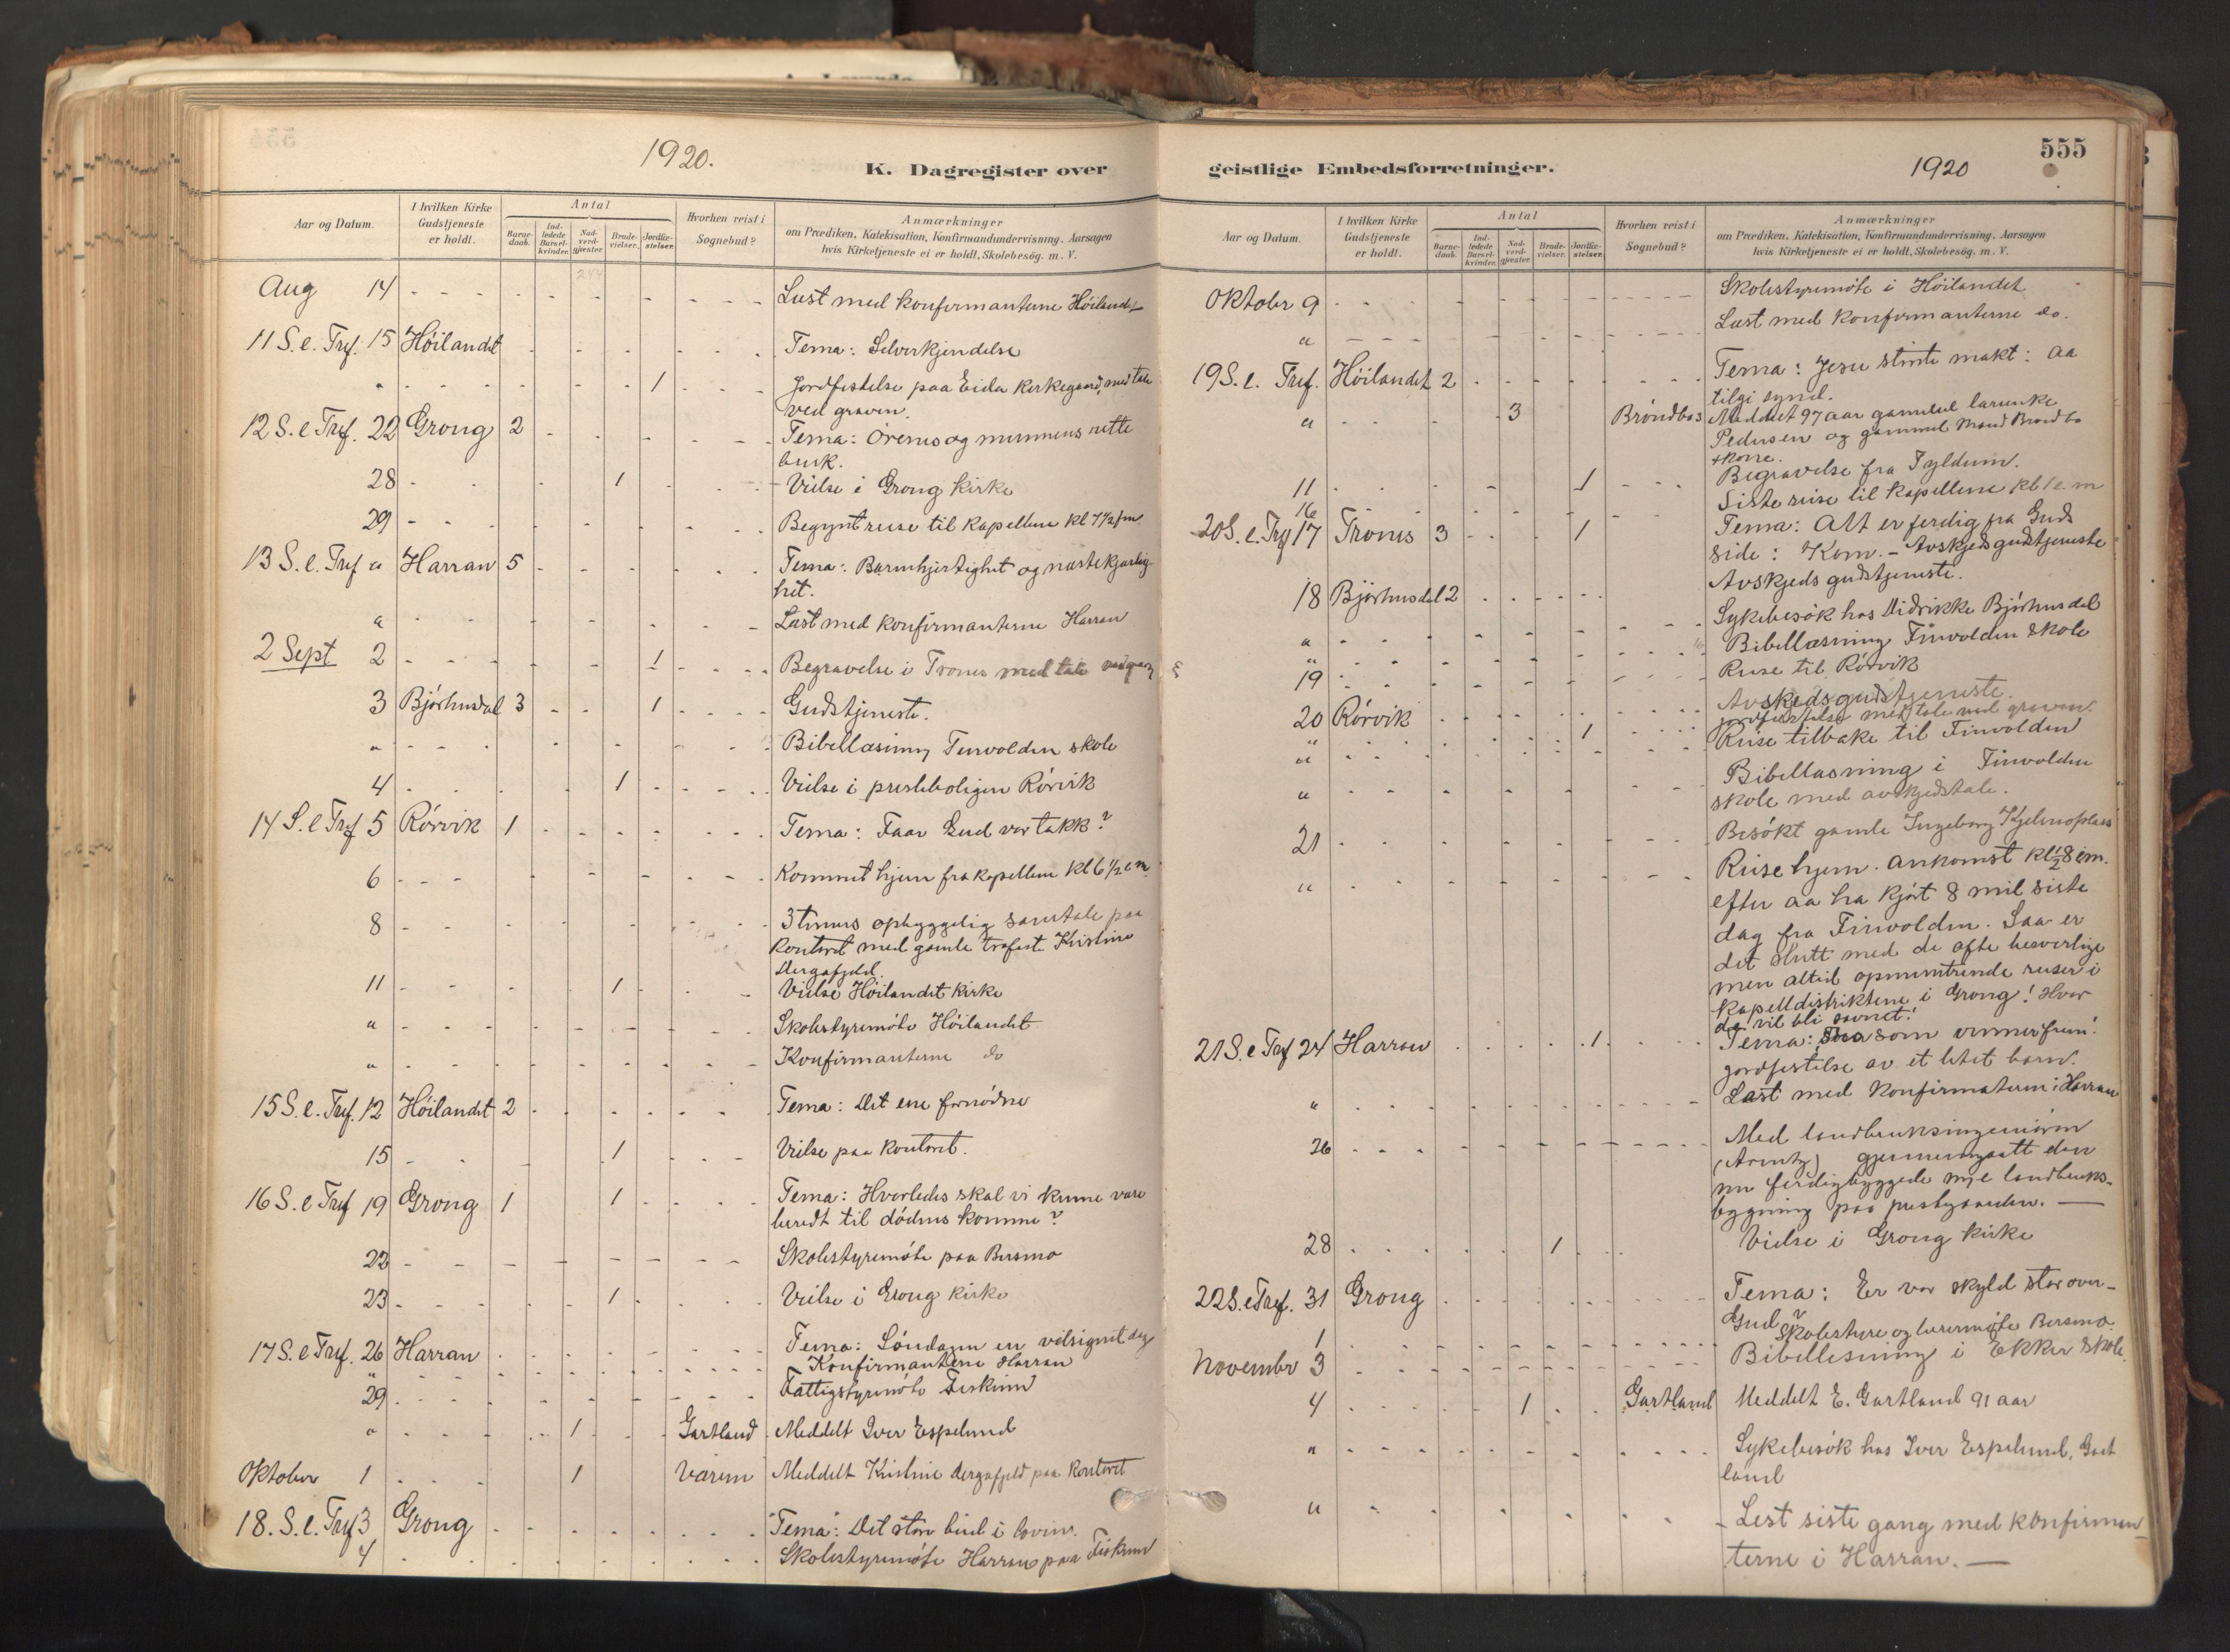 1920.
K. Dagregister over
Aar og Datum.
I hvilken Kirke
Gudstjeneste
er holdt.
Antal
Barne-
daab.
Ind-
ledede
Barsel-
kvinder.
Nad-
verd-
gjester.
Brude-
vielser.
Jordfæ-
stelser.
Hvorhen reist i
Sognebud?
Anmærkninger
om Prædiken, Katekisation, Konfirmandundervisning, Aarsagen
hvis Kirketjeneste ei er holdt, Skolebesøg. m. V.
244
Aug 14 Læst med konfirmanterne Höilandet
11 S. e. Tref. 15 Höilandet Tema: Selverkjendelse
" 1 Jordfestelse paa Eida kirkegaard, med tale
ved graven.
12 S. e Tref. 22 Grong 2 Tema: Örenes og munnens rette
bruk.
28 1 Vielse i Grong kirke
29 Begynt reise til kapellene kl 7½ fm.
13 S. e. Tref " Harran 5 Tema: Barmhjertighet og næstekjærlig-
het.
" Læst med konfirmanterne Harran
2 Sept 2 1 Begravelse i Trones med tale ved grav
3 Bjørhusdal 3 1 Gudstjeneste.
" Bibellæsning Finvolden skole
4 1 Vielse i presteboligen Rörvik
14 S. e Tref 5 Rörvik 1 Tema: Faar Gud vor takk?
6 Kommet hjem fra kapellene kl 6½ em
8 3 timers opbyggelig samtale paa
kontoret med gamle trofaste Kristine
Dergafjeld.
11 1 Vielse Höilandet kirke
" Skolestyremöte Höilandet
" Konfirmanterne do
15 S. e. Tref. 12 Höilandet 2 Tema: Det ene fornödne
15 1 Vielse paa kontoret.
16 S. e Tref 19 Grong 1 1 Tema: Hvorledes skal vi kunne være
beredt til dödens komme?
22 Skolestyremöte paa Bersmo
23 1 Vielse i Grong kirke
17 S. e Tref. 26 Harran Tema: Söndagen en velsignet dag
" Konfirmanterne Harran
29 Fattigstyremöte Fiskum
" 1 Gartland Meddelt Iver Espelund
Oktober 1 1 Værem Meddelt Kristine Dergafjeld paa kontoret
18. S. e. Tref 3 Grong Tema: Det store bud i loven.
4 Skolestyremöte Harran paa Fiskum
geistlige Embedsforretninger.
1920
555
Aar og Datum.
I hvilken Kirke
Gudstjeneste
er holdt.
Antal
Barne-
daab.
Ind-
ledede
Barsel-
kvinder.
Nad-
verd-
gjester.
Brude-
vielser.
Jordfæ-
stelser.
Hvorhen reist i
Sognebud?
Anmærkninger
om Prædiken, Katekisation, Konfirmandundervisning, Aarsagen
hvis Kirketjeneste ei er holdt, Skolebesøg. m. V.
Oktober 9 Skolestyremöte i Höilandet
" Læst med konfirmanterne do.
19 S. e. Tref. Höilandet 2 Tema: Jesu störste makt: aa
tilgi synd.
" 3 Bröndbo 3 Meddelt 97 aar gammel
Pedersen og gammel mand Bröndbo
+ kone.
11 1 Begravelse fra Fyldum.
16 Siste reise til kapellene kl 1 e. m
20 S. e. Tref 17 Trones 3 1 Tema: Alt er ferdig fra Guds
side: Kom. - Avskjedsgudstjeneste
18 Bjørhusdal 2 Avskjedsgudstjeneste.
" Sykebesök hos Didrikke Bjørhusdal
" Bibellæsning Finvolden skole
19 Reise til Rörvik
20 Rörvik Avskedsgudstjeneste.
" 1 jordfestelse med tale ved graven.
" Reise tilbake til Finvolden
" Bibellæsning i Finvolden
skole med avskjedstale.
21 Besökt gamle Ingeborg Kjelmoplass
" Reise hjem. Ankomst kl ½8 em.
efter aa ha kjört 8 mil siste
dag fra Finvolden. Saa er
det slutt med de ofte besverlige
men altid opmuntrende reiser i
kapelldistriktene i Grong! Hvor
de vil bli savnet!
21 S. e Tref 24 Harran 1 Tema: Troa som vinner frem!
Jordfestelse av et litet barn.
" Læst med konfirmanterne i Harran
26 Med landbruksingeniören
(Arentz) gjennemgaatt den
nu ferdigbyggede nye landbruks-
bygning paa prestgaarden. —
28 1 Vielse i Grong kirke
22 S. e Tref. 31 Grong Tema: Er vor skyld stor over-
Gud?
1 Skolestyre og læremöte Bersmo
November 3 Bibellesning i Ekker skole.
4 1 Gartland Meddelt E. Gartland 91 aar
" Sykebesök hos Iver Espelund, Gart
land
" Lest siste gang med konfirman-
terne i Harran. —